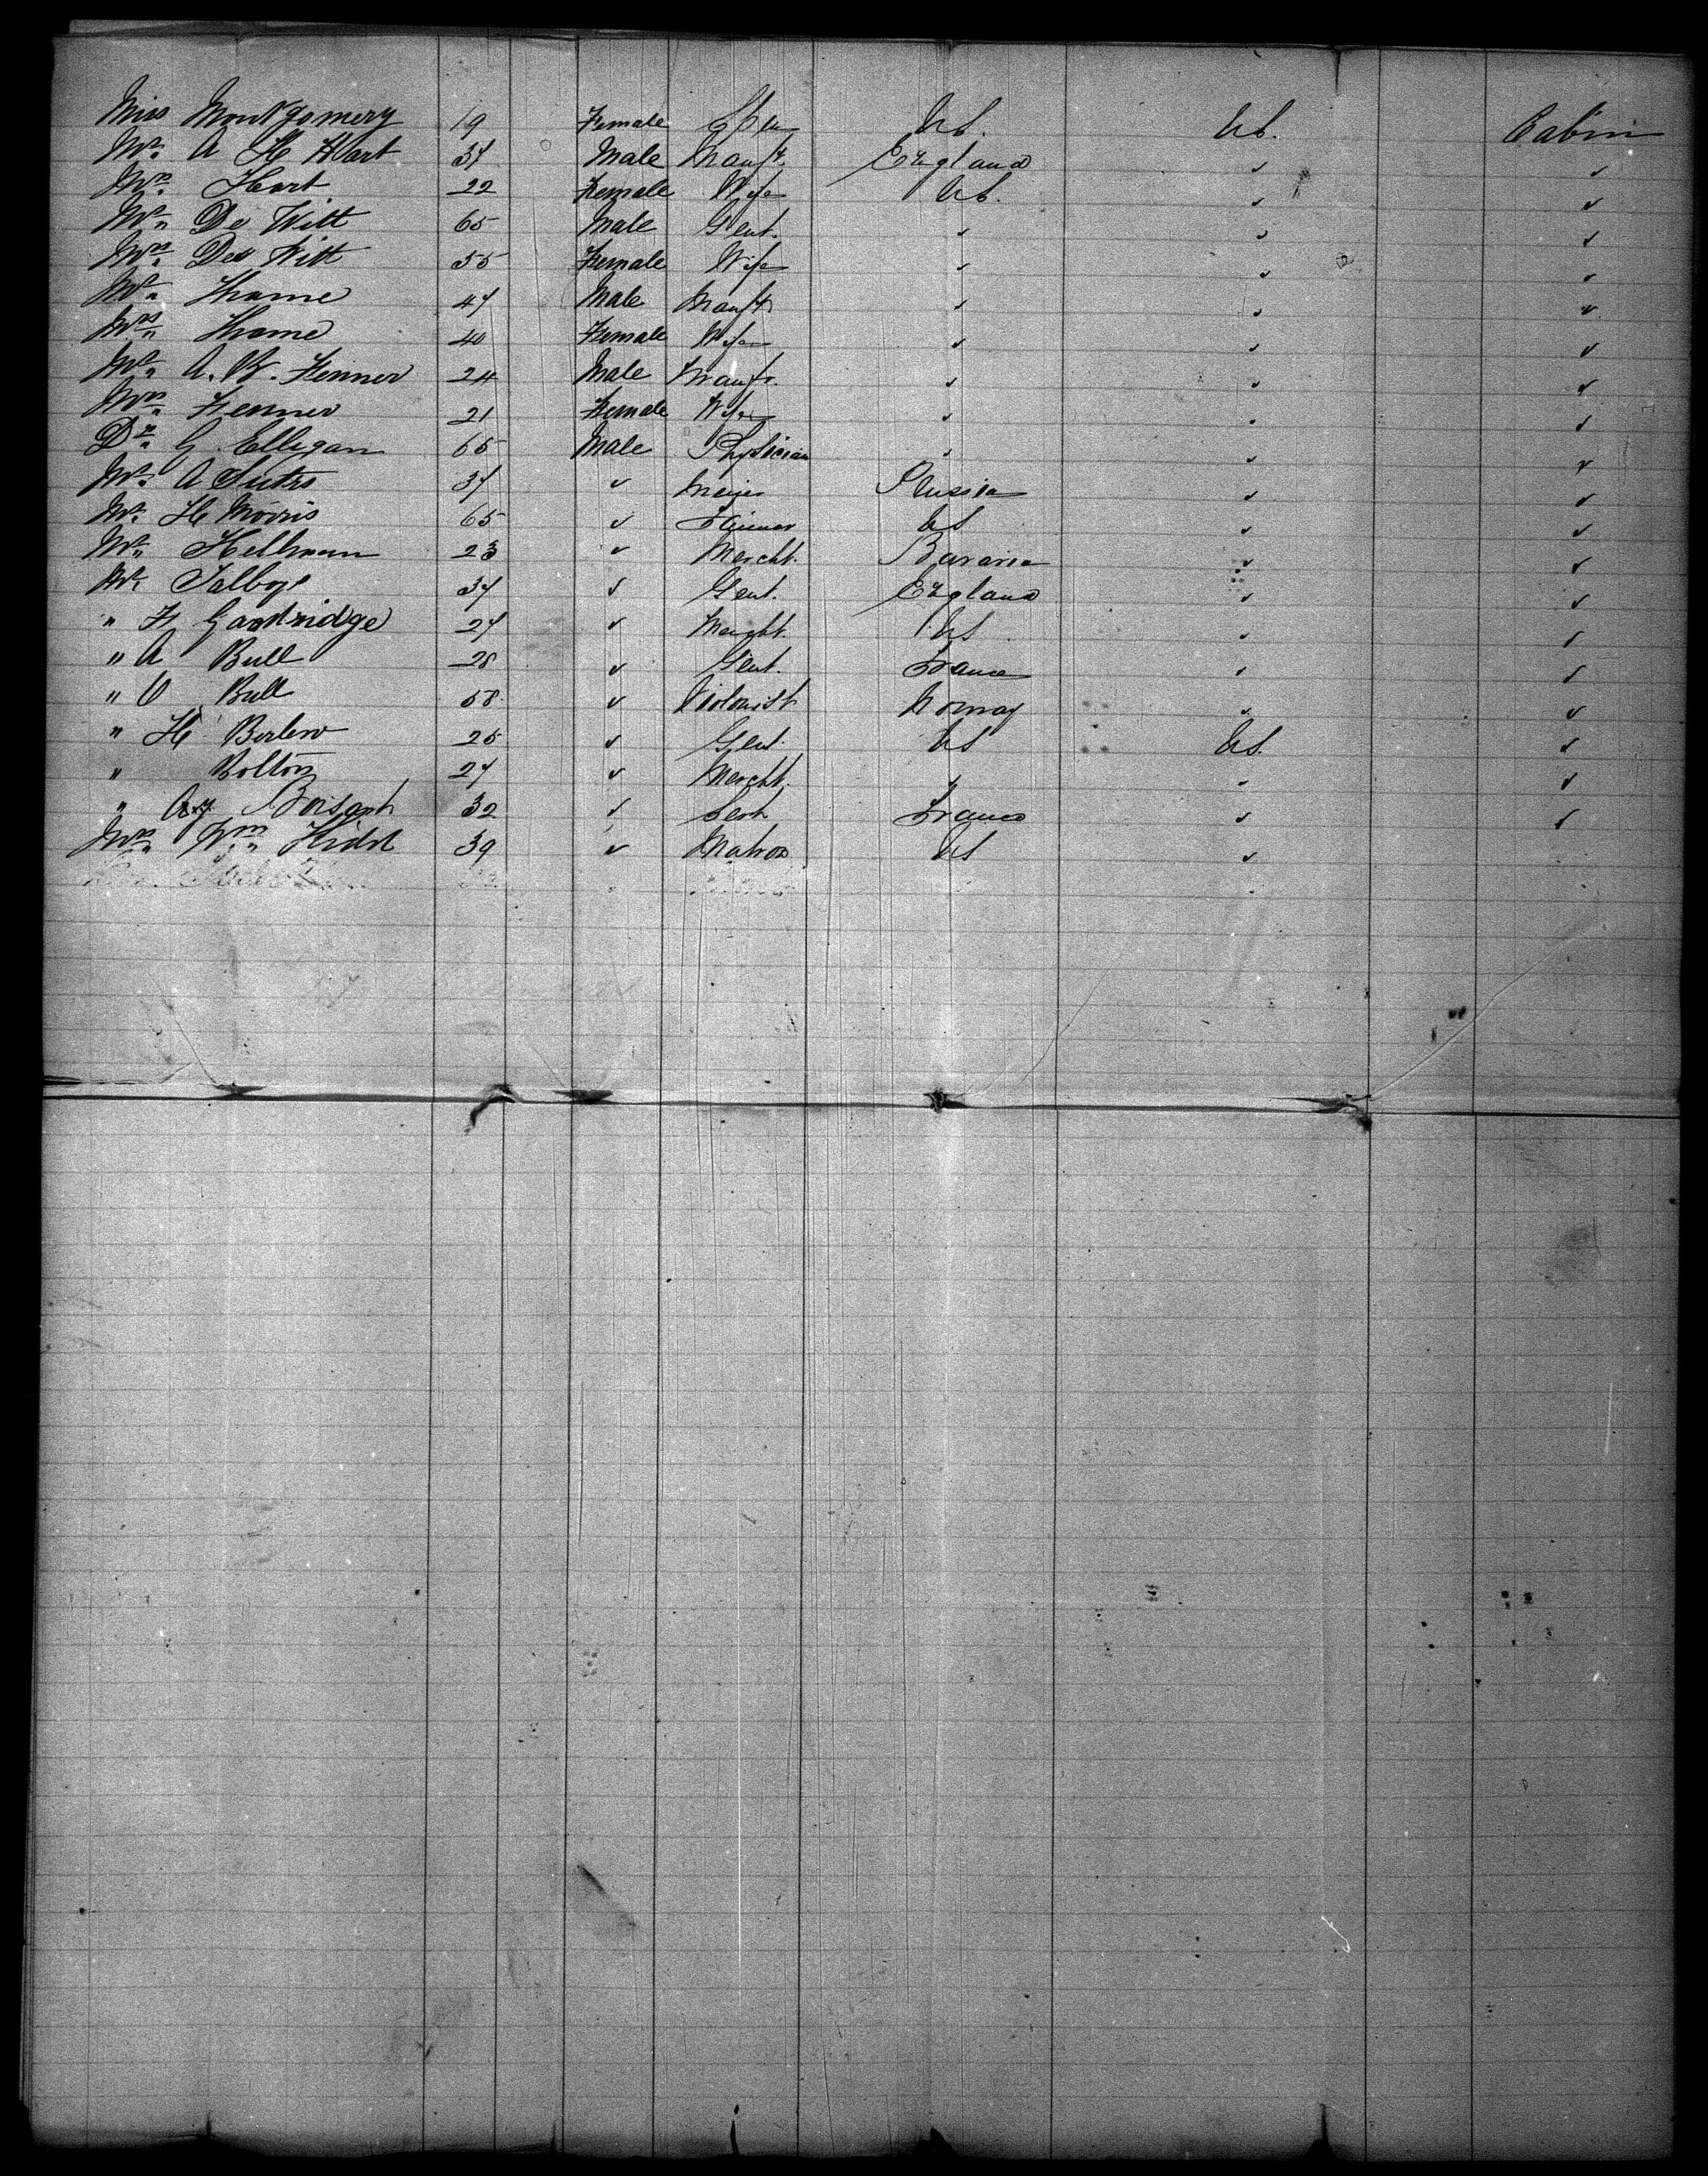 Miss Montgomery 19 Female Spin US. US. Cabin
Mr. A H Hart 37 Male Manufr. England ✓ ✓
Mrs. Hart 22 Female Wife US. ✓ ✓
Mr. De Witt 65 Male Gent. ✓ ✓ ✓
Mrs. De Witt 55 Female Wife ✓ ✓ ✓
Mr. Thorne 47 Male Manufr ✓ ✓ ✓
Mrs. Thorne 40 Female Wife ✓ ✓ ✓
Mr. A. W. Fenner 24 Male Manufr. ✓ ✓ ✓
Mrs. Fenner 21 Female Wife ✓ ✓ ✓
Dr. G. Elligan 65 Male Physician ✓ ✓ ✓
Mr. A Sutro 37 ✓ Prussia ✓ ✓
Mr. H Morris 65 ✓ Farmer US ✓ ✓
Mr. Hellman 23 ✓ Mercht. Bavaria ✓ ✓
Mr. Talboys 37 ✓ Gent. England ✓ ✓
" F Goodridge 27 ✓ Mercht. US ✓ ✓
" A Bull 28 ✓ Gent. France ✓ ✓
" O Bull 58 ✓ Violonist Norway ✓ ✓
" H Berlew 25 ✓ Gent. US US. ✓
" Bolton 27 ✓ Mercht. ✓ ✓ ✓
" 32 ✓ France ✓ ✓
Mrs. Wm. Kidd 39 ✓ Matron US ✓